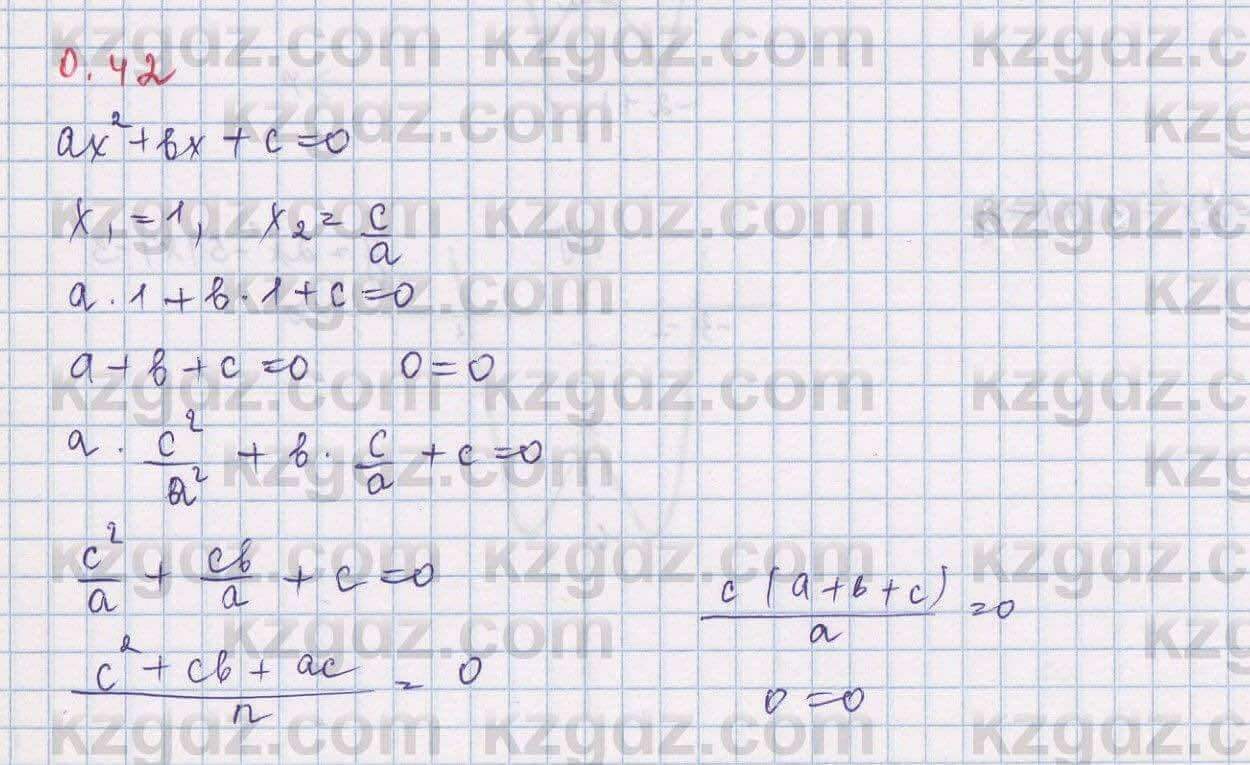 0.42
ax² + вx + c = 0
x₁ = 1, x₂ = c/a
a · 1 + в · 1 + c = 0
a + в + c = 0 0 = 0
a · c²/a² + в · c/a + c = 0
c²/a + cв/a + c = 0
(c² + cв + ac)/n = 0
c(a + в + c)/a = 0
0 = 0
kzgdz.com